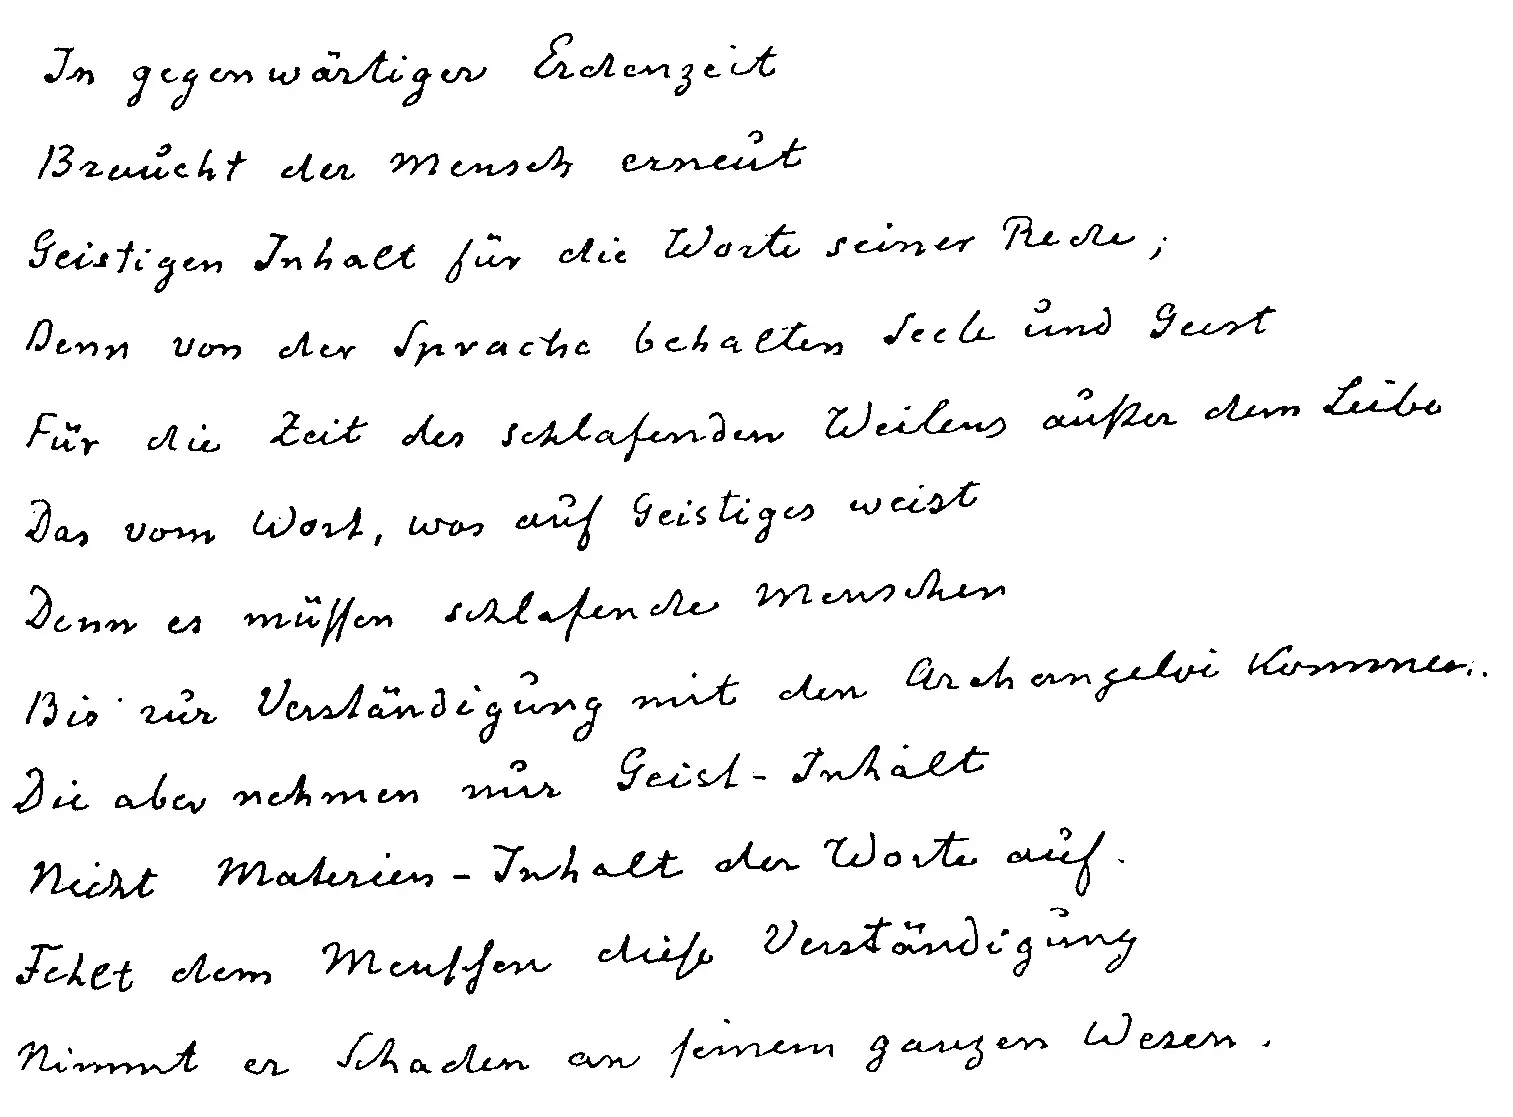 In gegenwärtiger Erdenzeit
Braucht der Mensch erneut
Geistigen Inhalt für die Worte seiner Rede;
Denn von der Sprache behalten Seele und Geist
Für die Zeit des schlafenden Weilens außer dem Leibe
Das vom Wort, was auf Geistiges weist
Denn es müssen schlafende Menschen
Bis zur Verständigung mit den Archangeloi kommen..
Die aber nehmen nur Geist-Inhalt
Nicht Materien-Inhalt der Worte auf.
Fehlt dem Menschen diese Verständigung
Nimmt er Schaden an seinem ganzen Wesen.